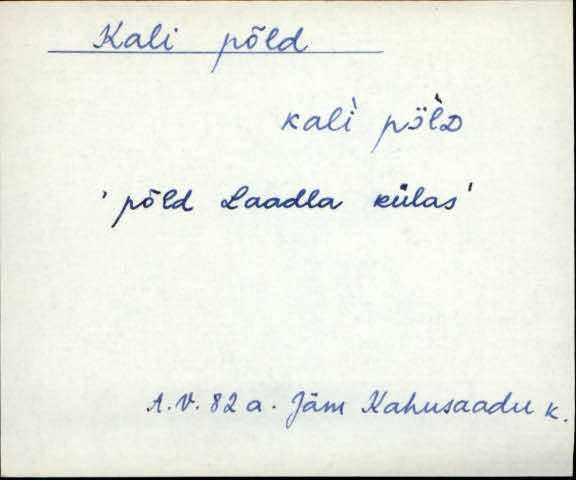 Kali põld
kalì̬ pö̀lD
'põld Laadla külas'
A.V. 82 a. Jäm Kahusaadu k.